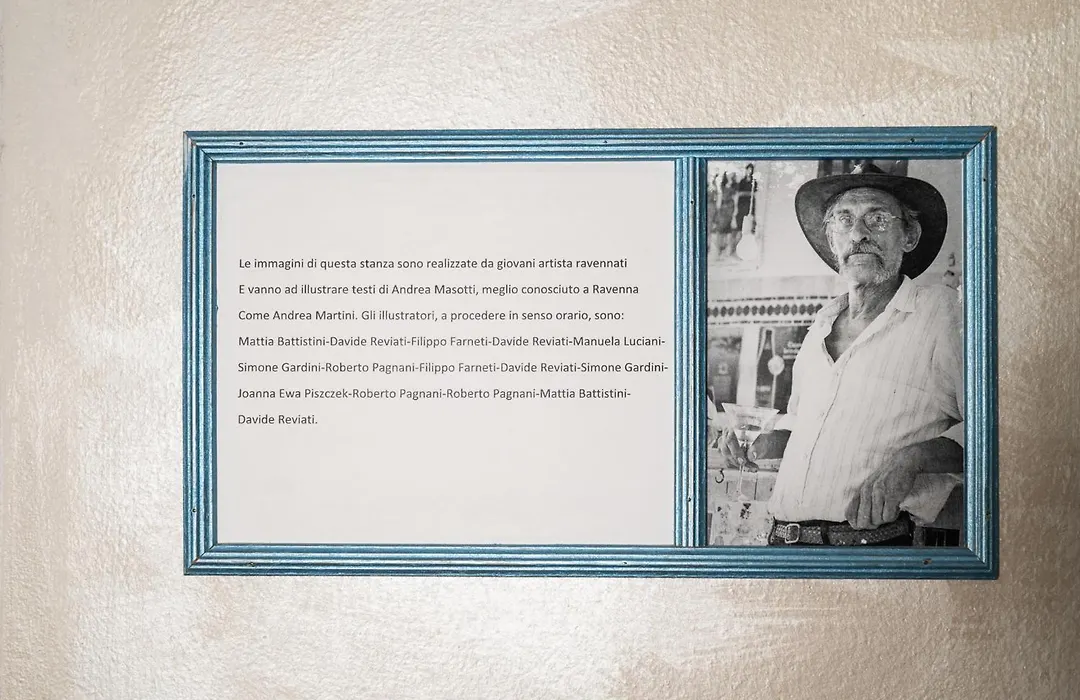 Le immagini di questa stanza sono realizzate da giovani artista ravennati
E vanno ad illustrare testi di Andrea Masotti, meglio conosciuto a Ravenna
Come Andrea Martini. Gli illustratori, a procedere in senso orario, sono:
Mattia Battistini-Davide Reviati-Filippo Farneti-Davide Reviati-Manuela Luciani-
Simone Gardini-Roberto Pagnani-Filippo Farneti-Davide Reviati-Simone Gardini-
Joanna Ewa Piszczek-Roberto Pagnani-Roberto Pagnani-Mattia Battistini-
Davide Reviati.